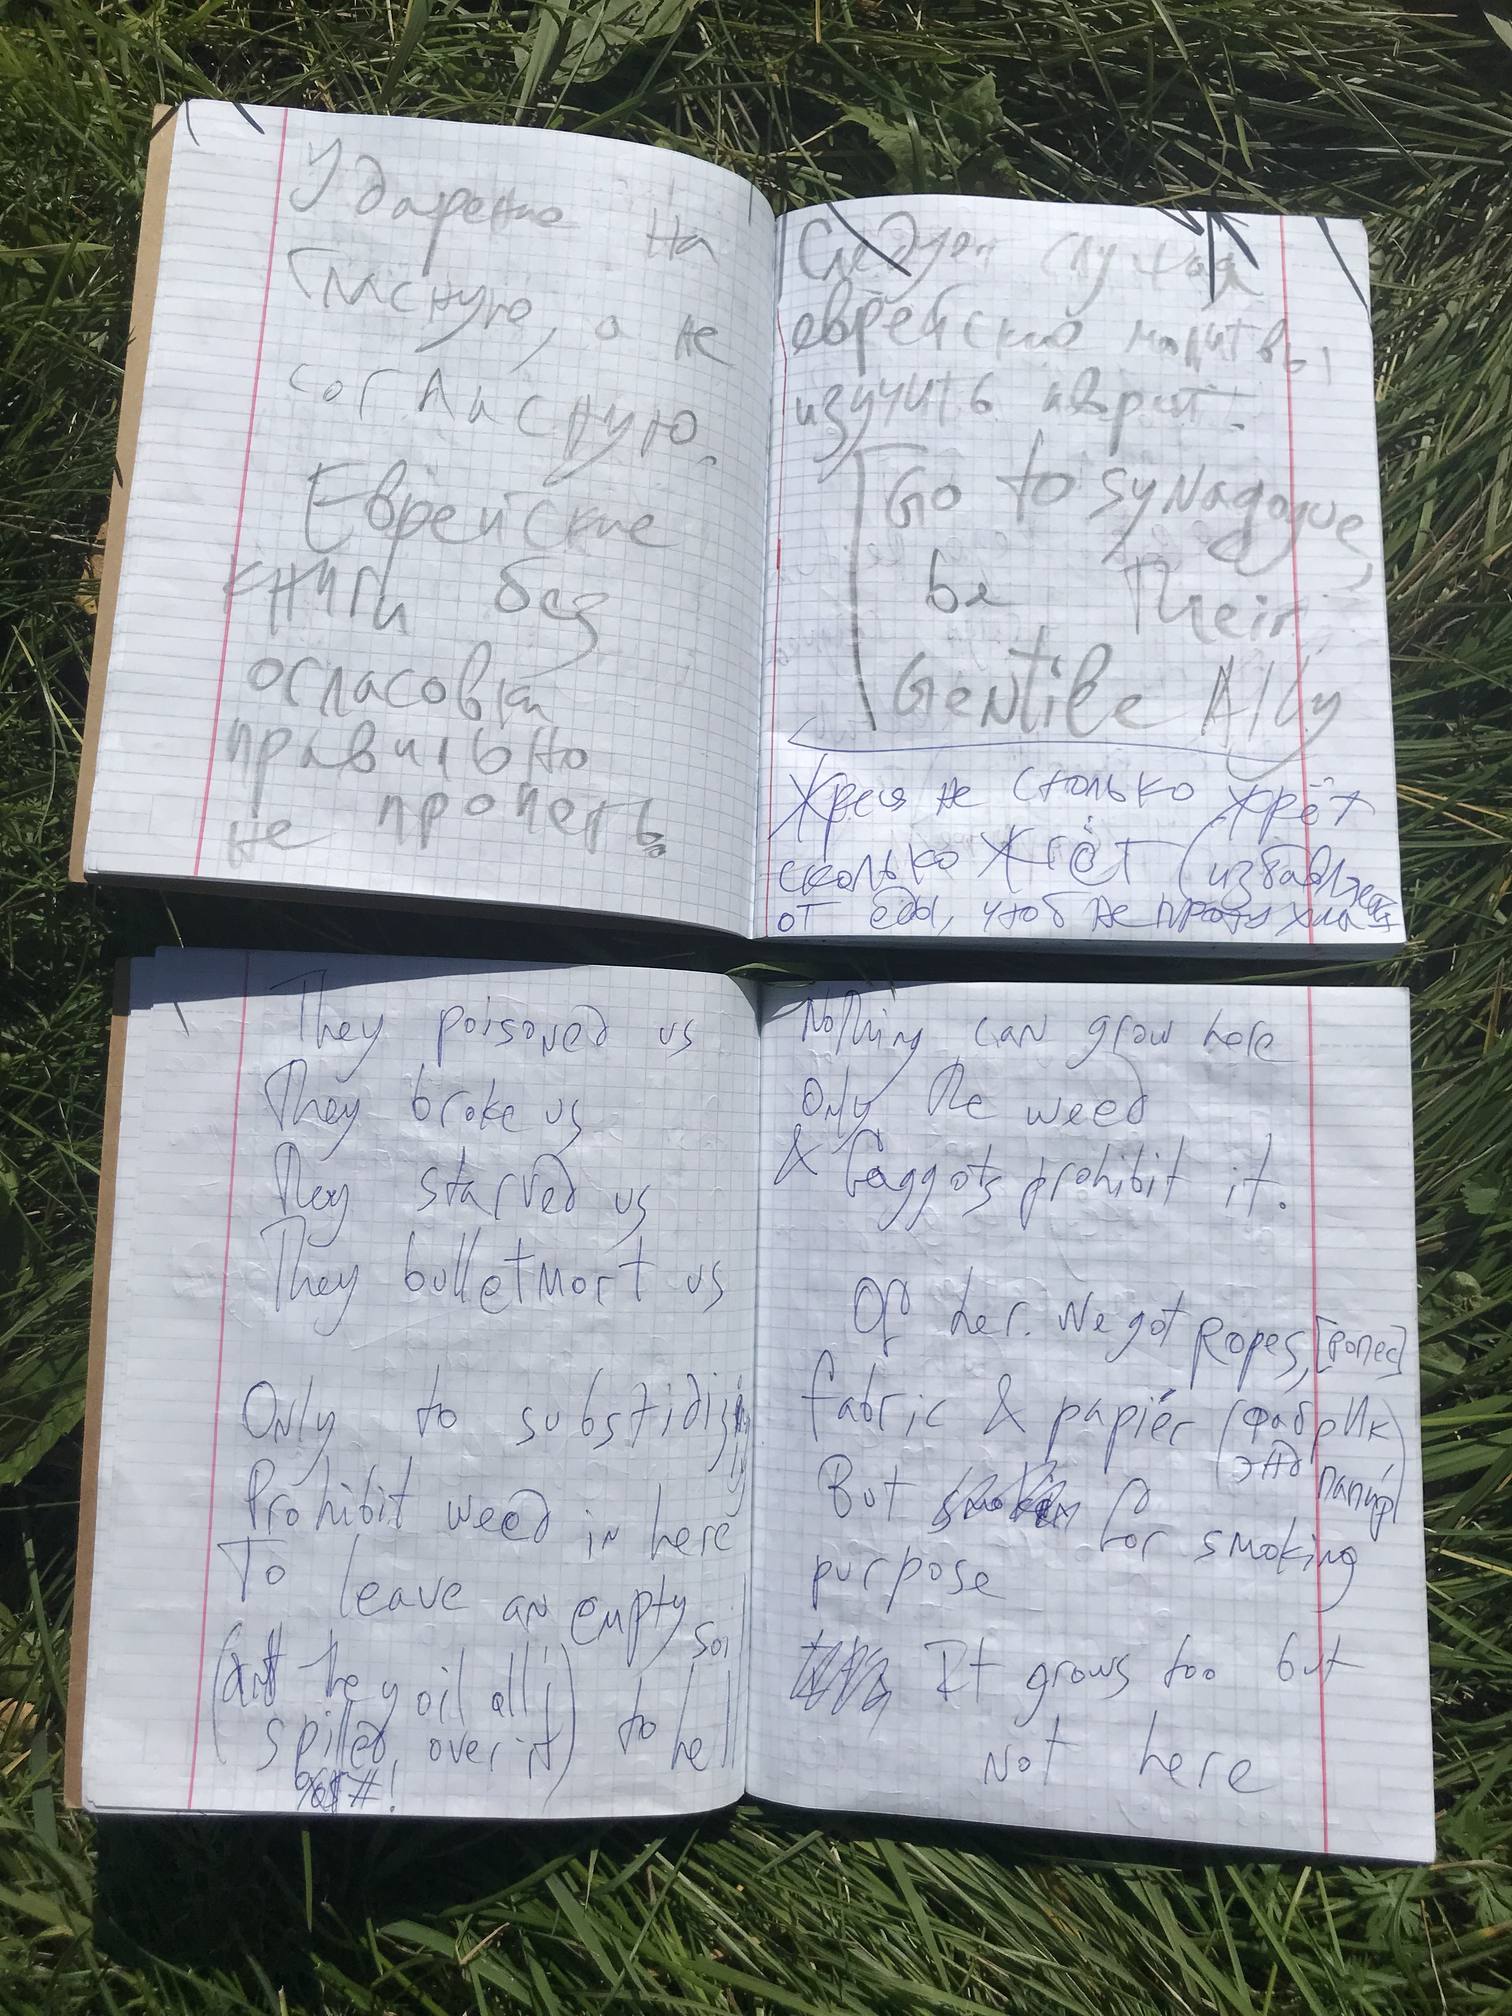 Ударение на
гласную, а не
согласную.
Еврейские
книги без
огласовки
правильно
не пропеть.
Следуя слушая
еврейские молитвы
изучить иврит.
Go to synagogue,
be their
Gentile Ally
Жрея не столько жрёт
сколько жгёт (избавляется
от еды, чтоб не протухла
They poisoned us
They broke us
They starved us
They bulletmort us
Only to substidizj
Prohibit weed in here
To leave an empty soi
they oil all
spilled over it) to hell
Nothing can grow here
Only the weed
& faggots prohibit it.
Of her. We got Ropes, [ропес]
fabric & papiér (фабрИк
энд папиp)
But for smoking
purpose
It grows too but
not here